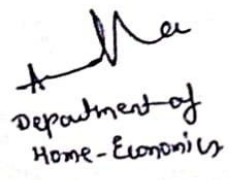 Department of
Home-Economics